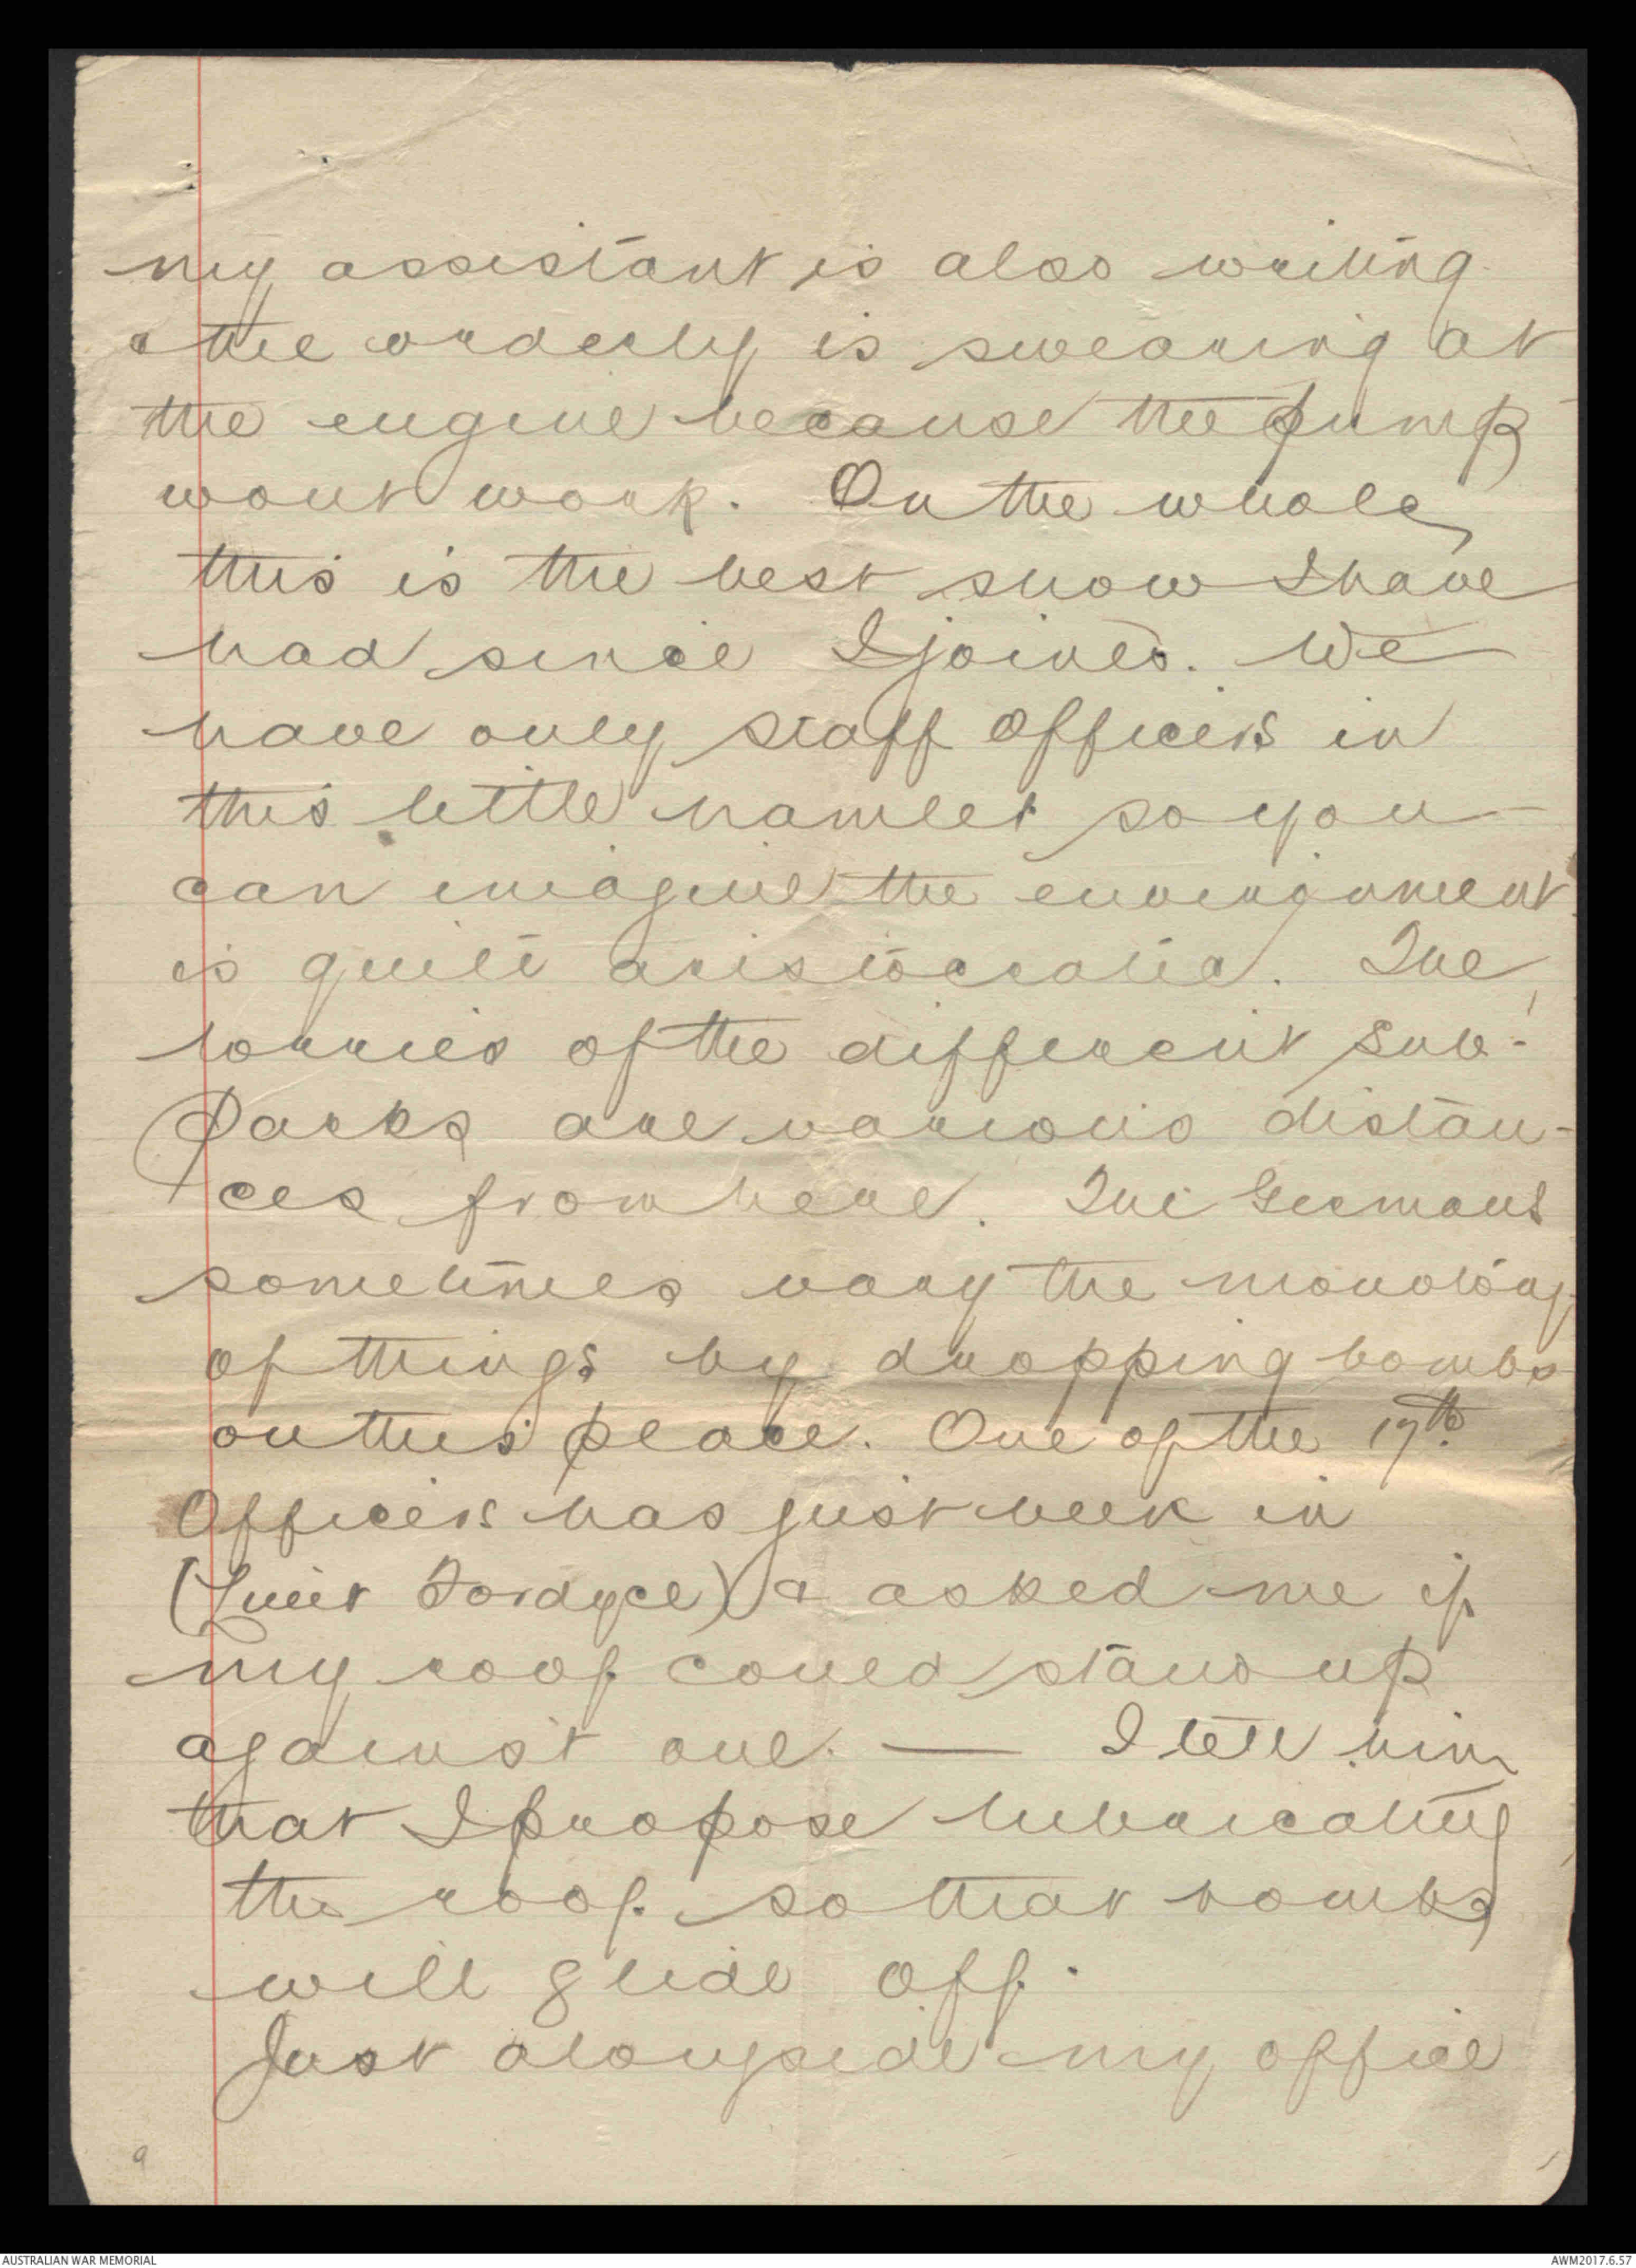 my assistant is also writing
& the orderly is swearing at
the engine because the pump
wont work. On the whole
this is the best show I have
had since I joined. We
have only staff officers in
this little hamlet so you
can imagine the environment
is quite aristocratic. The
lorries of the different Sub-
Parks are various distan-
ces from here. The Germans
sometimes vary the monotony
of things by dropping bombs
on this place. One of the 17th
Officers has just been in
(Lieut Fordyce) & asked me if
my roof could stand up
against one. — I tell him
that I propose lubricating
the roof so that bombs
will glide off.
Just alongside my office
9
AUSTRALIAN WAR MEMORIAL
AWM2017.6.57